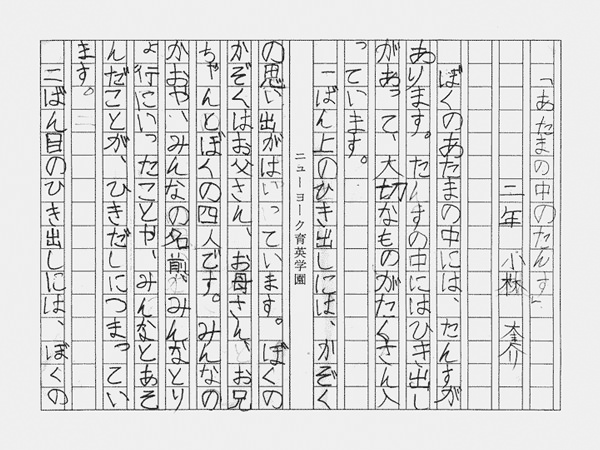 「あたまの中のたんす」
二年 小林
ぼくのあたまの中には、たんすが
あります。たんすの中にはひき出し
があって、大切なものがたくさん入
っています。
一ばん上のひき出しには、かぞく
ニューヨーク育英学園
の思い出がはいっています。ぼくの
かぞくはお父さん、お母さん、お兄
ちゃんとぼくの四人です。みんなの
かおや、みんなの名前、みんなとり
ょ行にいったことや、みんなとあそ
んだことが、ひきだしにつまってい
ます。
二ばん目のひき出しには、ぼくの